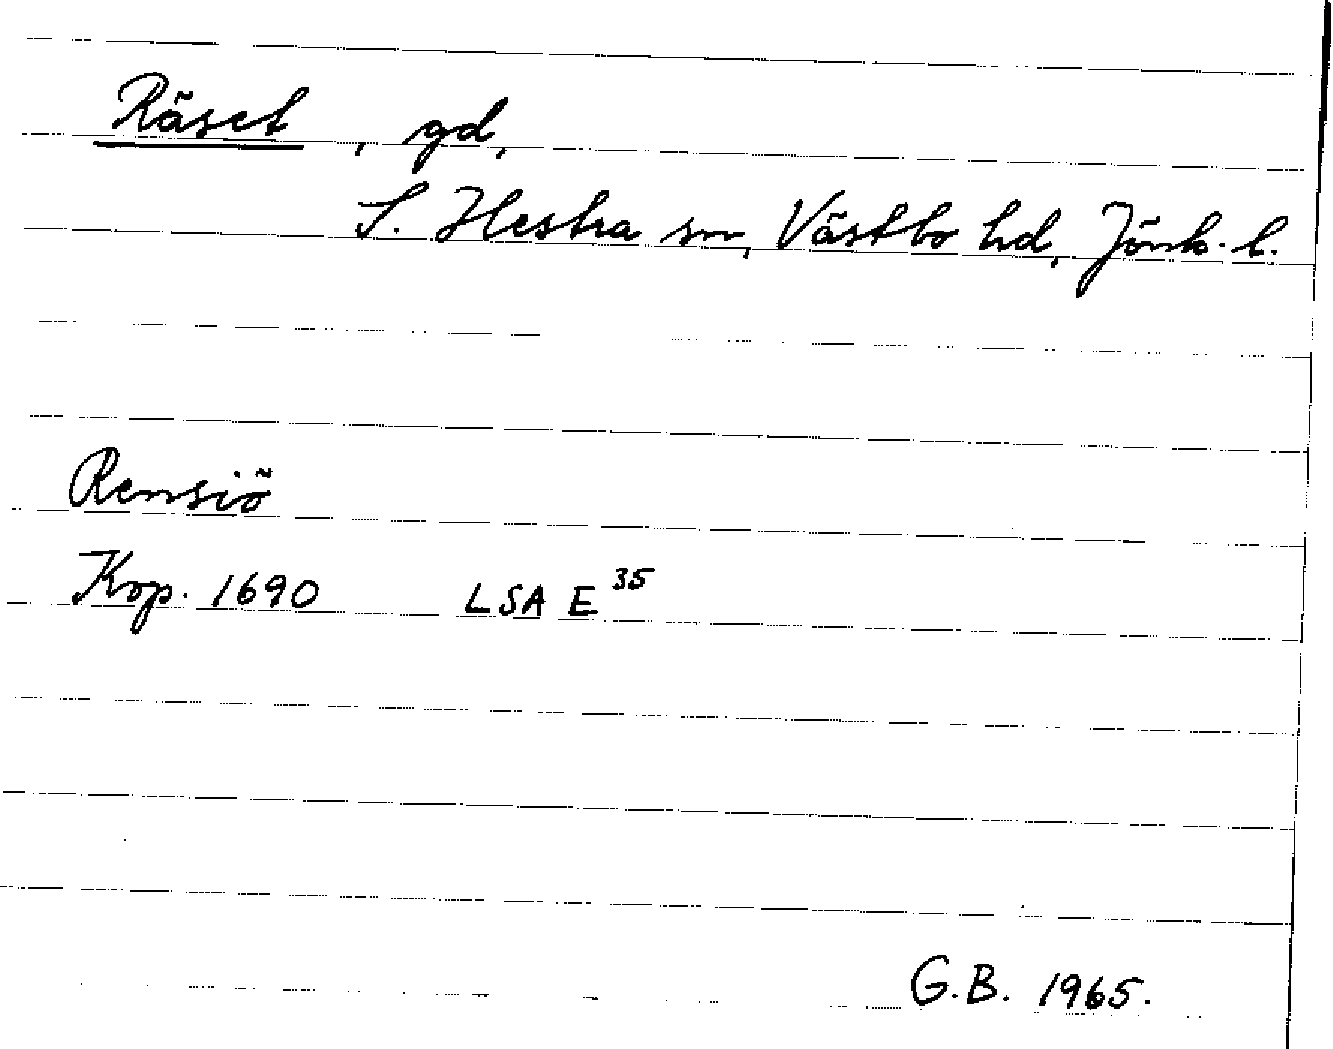 Räset, gd,
S. Hestra sn, Västbo hd, Jönk. l.
Rensiö
Kop. 1690 LSA E 35
G.B. 1965.